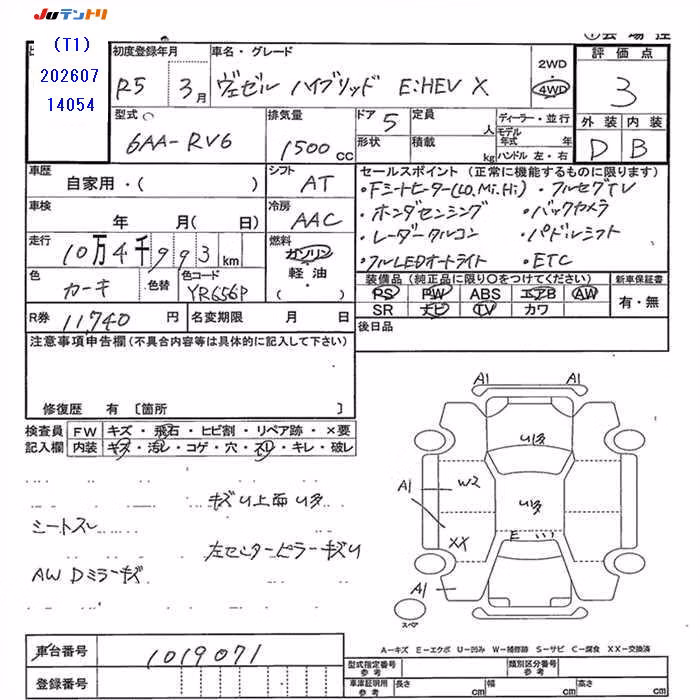 JUテントリ
(T1)
202607
14054
初度登録年月
R5 3月
車名・グレード
ヴェゼル ハイブリッド E:HEV X
2WD
・
4WD
評価点
3
外装 内装
D B
型式
6AA-RV6
排気量
1500 cc
ドア 5
形状
定員 人
積載 kg
ディーラー・並行
モデル年式 年
ハンドル 左・右
車歴
自家用・( )
シフト AT
車検
年 月( 日)
冷房 AAC
走行
10万4千993 km
燃料
ガソリン
軽油
・( )
色 カーキ
色替
色コード YR656P
R券 11,740 円
名変期限 月 日
セールスポイント (正常に機能するものに限ります)
・Fシートヒーター(LO.Mi.Hi) ・フルセグTV
・ホンダセンシング ・バックカメラ
・レーダークルコン ・パドルシフト
・フルLEDオートライト ・ETC
装備品(純正品に限り○をつけてください)
新車保証書
PS PW ABS エアB AW
SR ナビ TV カワ
有・無
後日品
注意事項申告欄(不具合内容等は具体的に記入して下さい)
修復歴 有 〔箇所 〕
検査員
記入欄
FW キズ・飛石・ヒビ割・リペア跡・×要
内装 キズ・汚レ・コゲ・穴・スレ・キレ・破レ
キズU上面U多
シートスレ
左センターピラーキズU
AW Dミラーキズ
A1 A1
U多
A1
W2
U多
E
XX
A1
スペア
A-キズ E-エクボ U-凹み W-補修跡 S-サビ C-腐食 XX-交換済
車台番号 1019071
登録番号
型式指定番号 参考
類別区分番号 参考
車庫証明用 参考
長さ cm
幅 cm
高さ cm